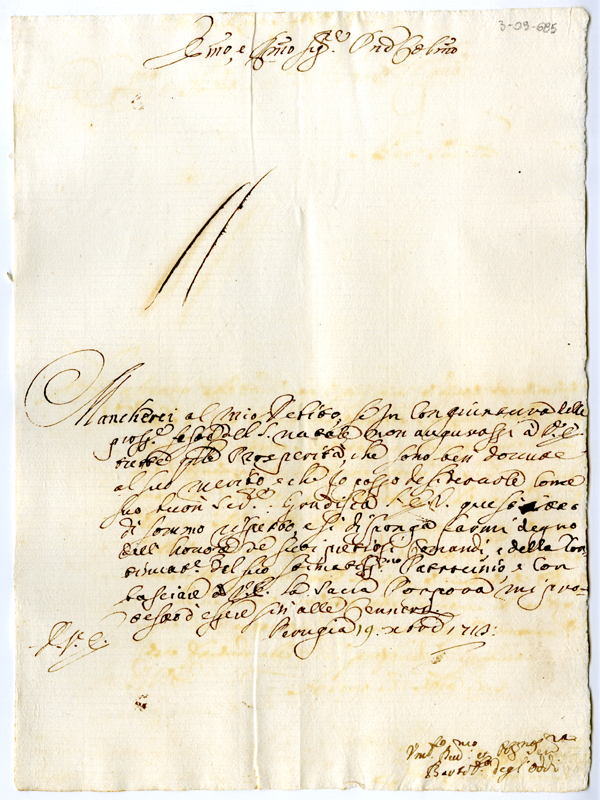 3-09-685
Emo, e Rmo Sig.r
Mancherei al mio debito, se in congiuntura delle
pross.e feste del S. Natale non augurassi à V.E.
tutte quelle Prosperità, che sono ben dovute
al suo merito, e che io posso desiderarle come
suo buon Ser.re Gradisca V.E. quest'atto
di sommo rispetto e si disponga farmi degno
dell'honore de suoi pretiosi Comandi, e della con
tinuat.e del suo stimatiss.mo Patrocinio e con
basciare à V.E. la Sacra Porpora mi pro-
testo d'essere sin alle ceneri.
Perugia 19. Xbre 1713.
V. E.
degl'Oddi